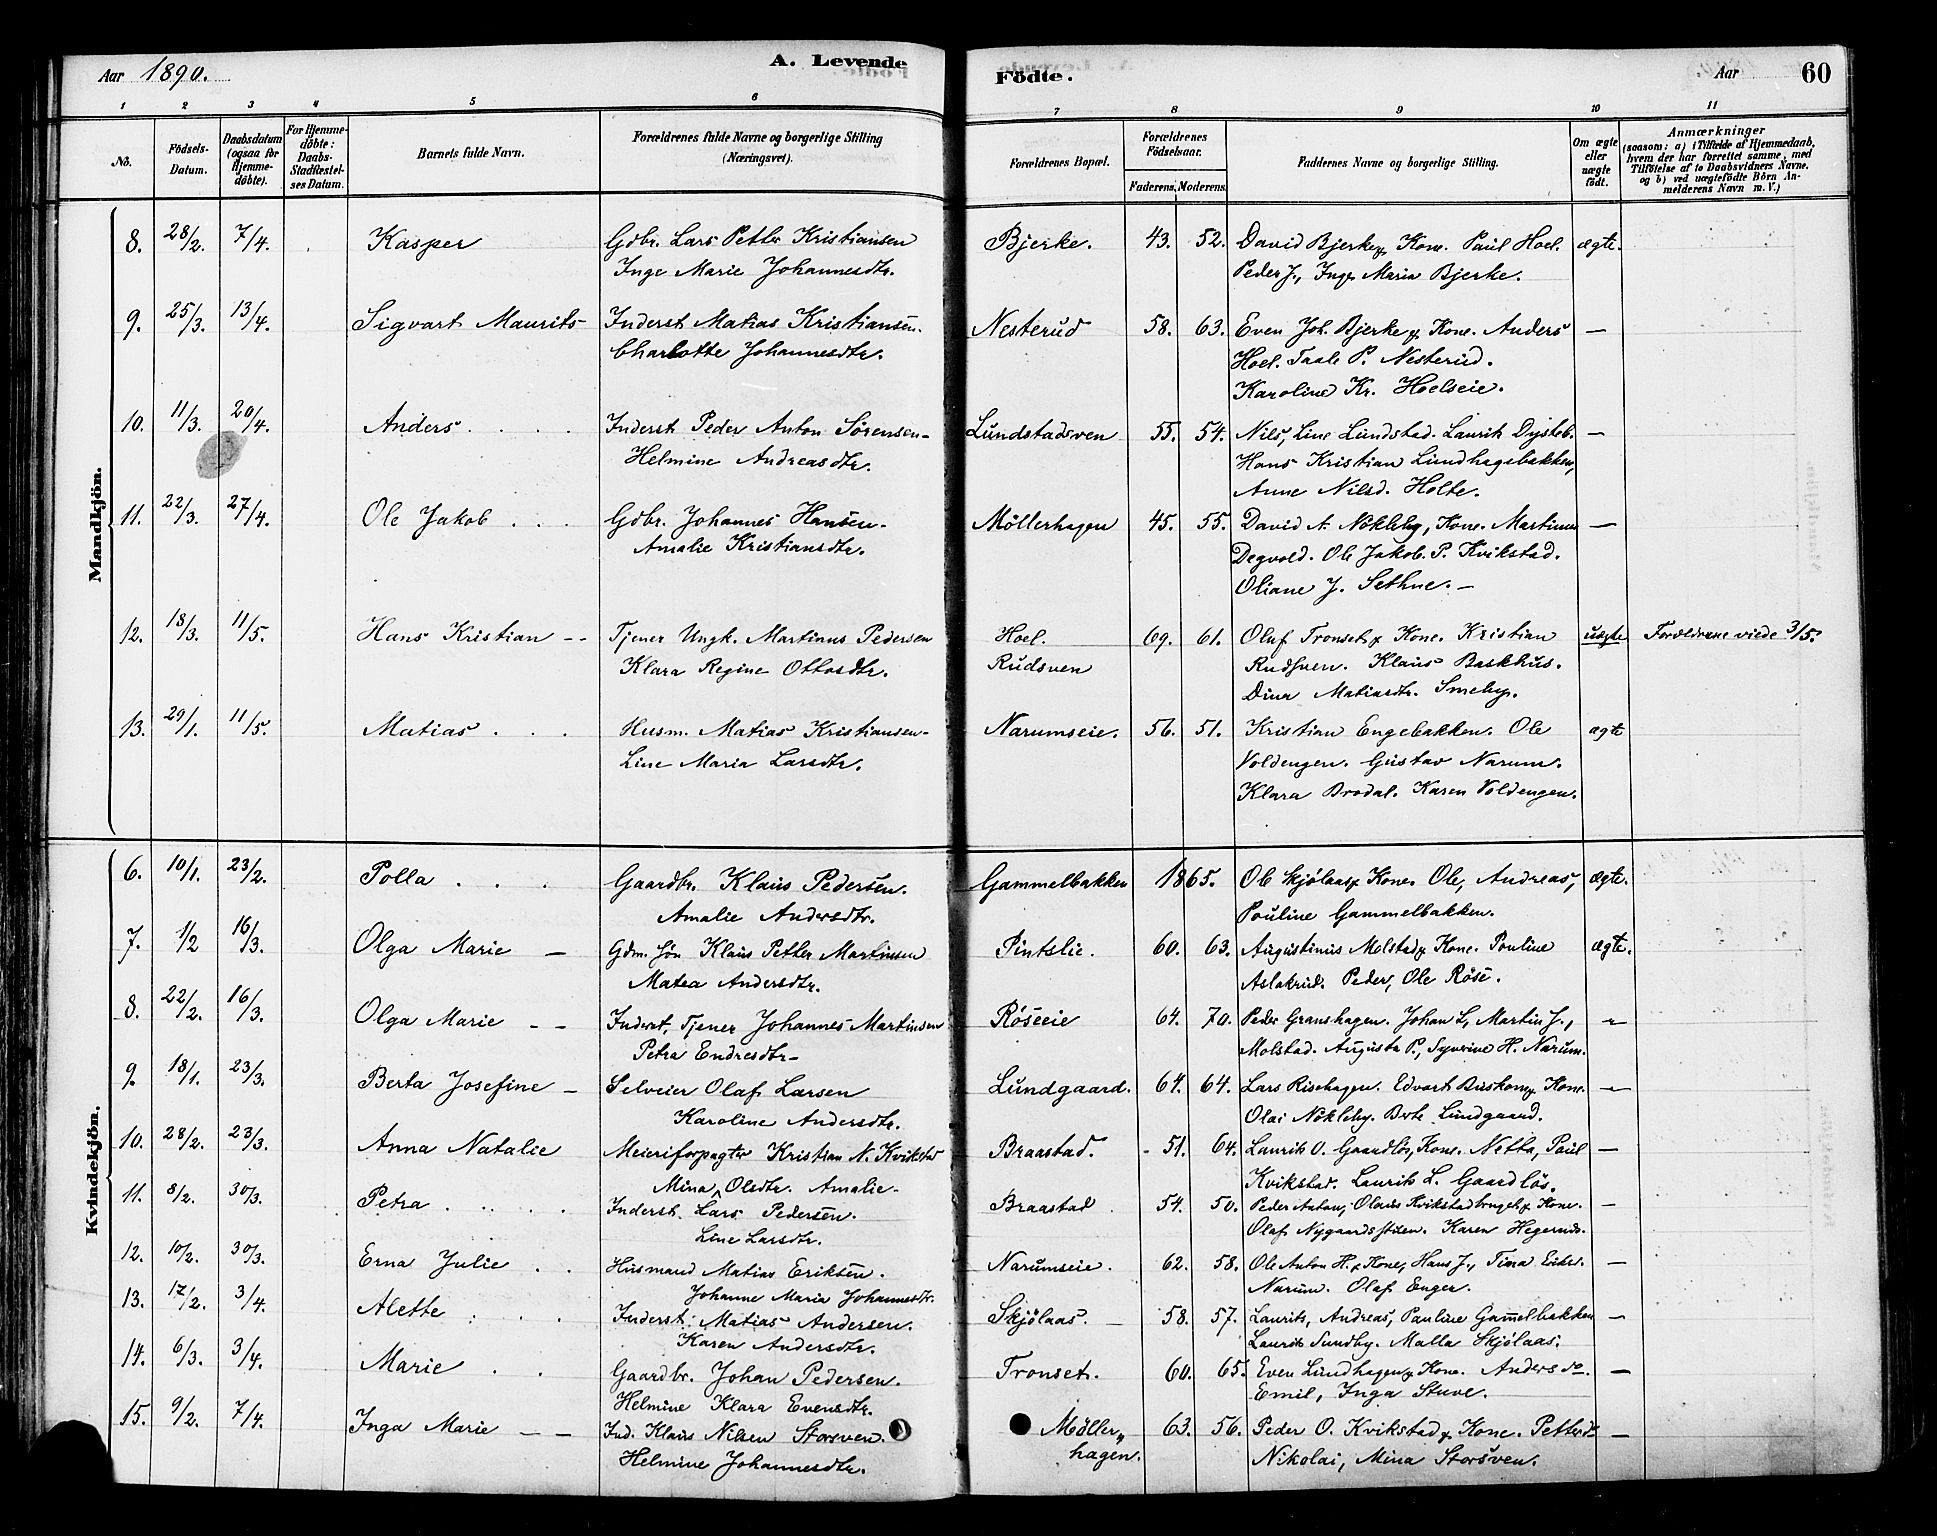 Aar 1890. A. Levende
Födte. Aar 60
1 2 3 4 5 6 7 8 9 10 11
No. Födsels-Datum. Daabsdatum (ogsaa for Hjemme-döbte). For Hjemme-döbte: Daabs-Stadfæstel-ses Datum. Barnets fulde Navn. Forældrenes fulde Navne og borgerlige Stilling (Næringsvei). Forældrenes Bopæl. Forældrenes Födselsaar. Faderens. Moderens. Faddernes Navne og borgerlige Stilling. Om ægte eller uægte födt. Anmærkninger (saasom: a) i Tilfælde af Hjemmedaab, hvem der har forrettet samme, med Tilföielse af to Daabsvidners Navne. og b) ved uægtefödte Börn An-melderens Navn m. V.)
Mandkjön.
8. 28/2. 7/4. Kasper Gdbr. Lars Petter Kristiansen Bjerke. 43. 52. David Bjerke & Kone. Paul Hoel. ægte.
Inge Marie Johannesdtr. Peder J., Inge Maria Bjerke.
9. 25/3. 13/4. Sigvart Maurits Inderst Matias Kristiansen. Nesterud 58. 63. Even Joh. Bjerke & Kone. Anders —
Charlotte Johannesdtr. Hoel. Taale P. Nesterud.
Karoline Kr. Hoelseie.
10. 11/3. 20/4. Anders. Inderst Peder Anton Sørensen Lundstadsven 55. 54. Nils, Line Lundstad. Laurits Dysteb. —
Helmine Andreasdtr. Hans Kristian Lundhagebakken,
Anne Nilsd. Holte.
11. 22/3. 27/4. Ole Jakob Gdbr. Johannes Hansen Möllerhagen 45. 55. David A. Nökleby, Kone. Martinus —
Amalie Kristiansdtr. Degvold. Ole Jakob. P. Kvikstad.
Oliane J. Sethne. —
12. 18/3. 11/5. Hans Kristian Tjener Ungk. Martinus Pedersen Hoel. 69. 61. Oluf Tronset & Kone. Kristian uægte Forældrene viede 3/5.
Klara Regine Ottosdtr. Rudsven Rudsven. Klaus Bakkhus.
Dina Matiasdtr. Smeby.
13. 29/1. 11/5. Matias Husm. Matias Kristiansen Narumseie. 56. 51. Kristian Engebakken. Ole ægte
Line Maria Larsdtr. Voldengen. Gustav Narum.
Klara Brodal. Karen Voldengen.
Kvindekjön.
6. 10/1. 23/2. Polla Gaardbr. Klaus Pedersen. Gammelbakken 1865. Ole Skjölaas & Kone. Ole, Andreas, Ægte.
Amalie Andersdtr. Pouline Gammelbakken.
7. 1/2 16/3. Olga Marie Gdm. Søn Klaus Petter Martinsen Pintslie. 60. 63. Augustinus Molstad & Kone. Pouline ægte.
Matea Andersdtr. Aslakrud. Peder, Ole Röse.
8. 22/2. 16/3. Olga Marie Inderst, Tjener Johannes Martinsen Röseeie 64. 70. Peder Granshagen. Johan L, Martin J., —
Petra Endresdtr Molstad. Augusta P., Syverine H. Narum.
9. 18/1. 23/3. Berta Josefine Selveier Olaf Larsen Lundgaard. 64. 64. Lars Risehagen. Edvart Kone. —
Karoline Andersdtr. Olai Nökleby. Lundgaard.
10. 28/2. 23/3. Anna Natalie Meieriforpagter Kristian N. Kvikstad Braastad. 51. 64. Laurits O. Gaardlös, Kone. Netta, Paul —
Mina Olsdtr. Amalie Kvikstad. Laurits L. Gaardlös.
11. 8/2. 30/3. Petra Inderst. Lars Pedersen. Braastad 54. 50. Peder Anton, Olaus Kvikstad & Kone. —
Line Larsdtr. Olaf Nygaardsstuen. Karen Hegerud.
12. 10/2. 30/3. Erna Julie Husmand Matias Eriksen. Narumseie. 62. 58. Ole Anton H. & Kone, Hans J., Tina —
Johanne Maria Johannesdtr. Narum. Olaf Enger.
13. 17/2. 3/4. Alette Inderst. Matias Andersen. Skjölaas. 58. 57. Laurits, Andreas, Pauline Gammelbakken —
Karen Andersdtr. Laurits Sundby. Malla Skjölaas.
14. 6/3. 3/4. Marie Gaardbr. Johan Pedersen. Tronset. 60. 65. Even Lundhagen & Kone. Anders —
Helmine Klara Evensdtr. Emil, Inga Stuve.
15. 9/2. 7/4. Inga Marie Ind. Klaus Nilsen Storsven. Møller„ 63. 56. Peder O. Kvikstad & Kone. —
Helmine Johannesdtr. hagen. Nikolai, Mina Storsven.